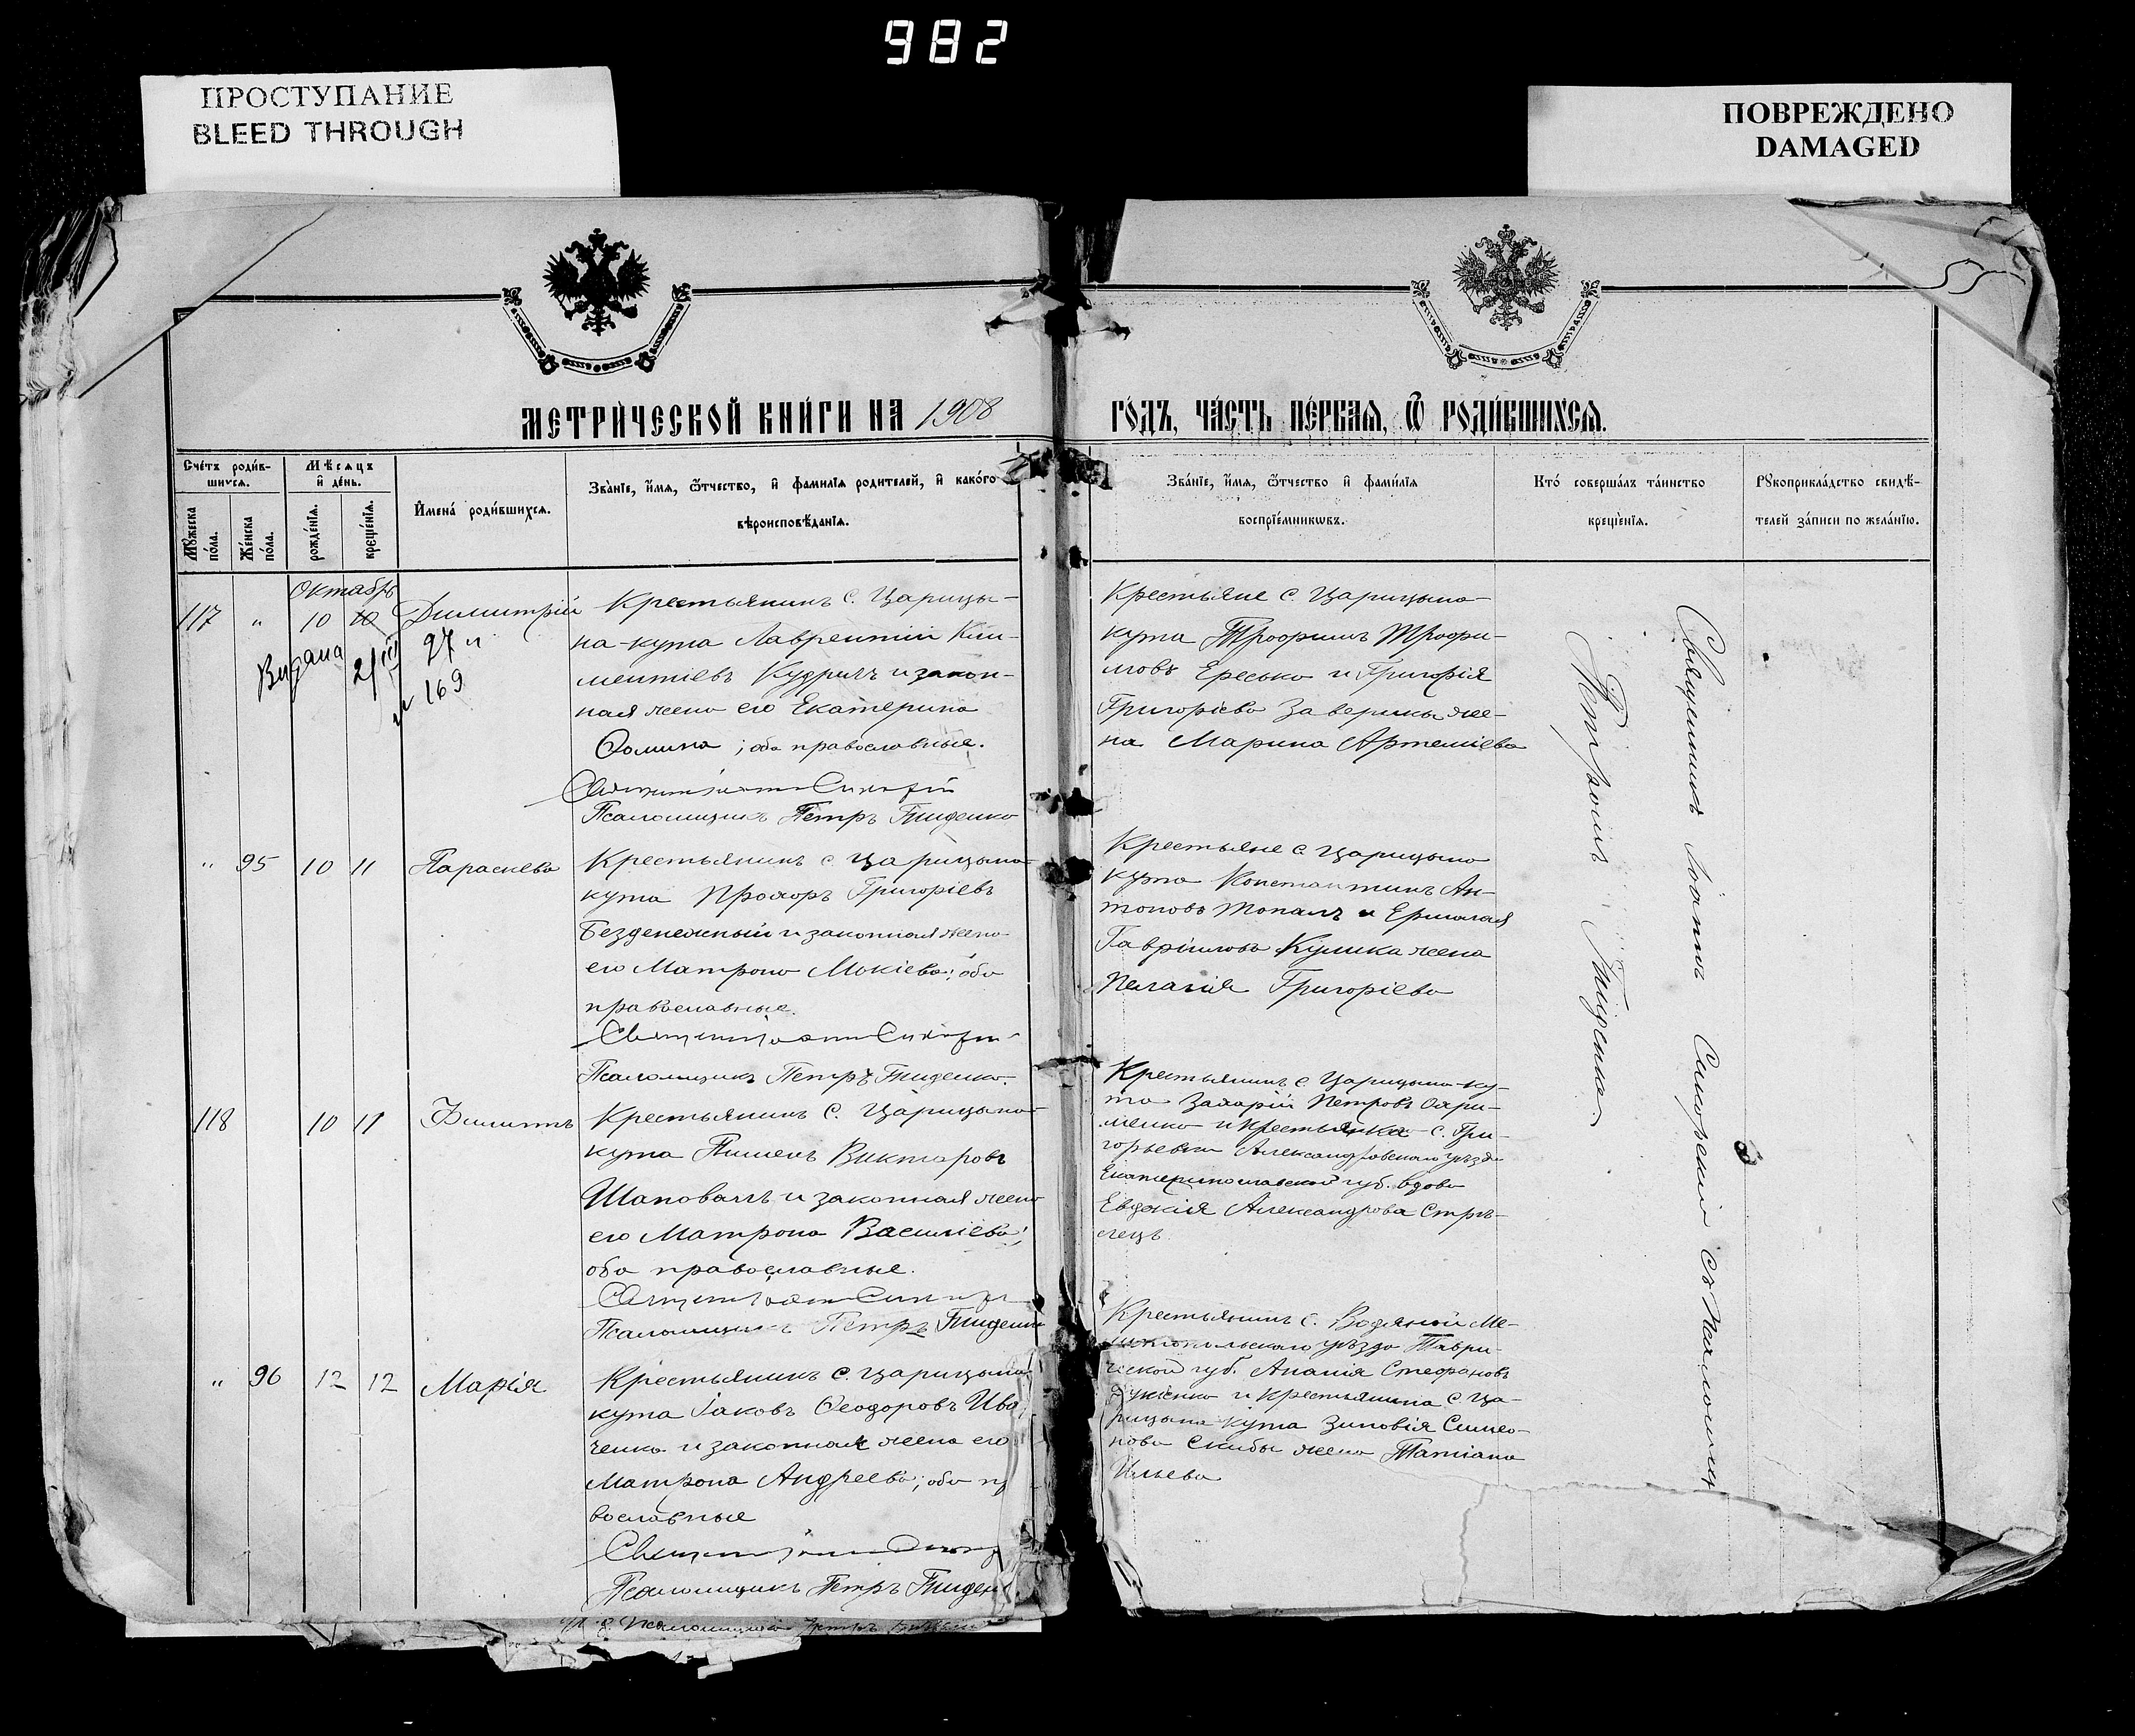 982
ПРОСТУПАНИЕ
BLEED THROUGH
ПОВРЕЖДЕНО
DAMAGED
55
МЕТРИ́ЧЕСКОЙ КНИ́ГИ НА 1908 ГО́ДЪ, ЧА́СТЬ ПЕ́РВАѦ, Ѿ РОДИ́ВШИХСѦ.
Счéтъ роди́в-
шихсѧ.
Мѣ́сѧцъ
и҆ де́нь.
Мꙋ́жеска
по́ла.
Же́нска
по́ла.
рожде́нїѧ.
креще́нїѧ.
И҆мена̀ роди́вшихсѧ.
Зва́нїе, и҆́мѧ, ѻ҆́тчество, и҆ фами́лїѧ роди́телей, и҆ како́гѡ
вѣроисповѣ́данїѧ.
Зва́нїе, и҆́мѧ, ѻ҆́тчество и҆ фами́лїѧ
воспрїе́мникѡвъ.
Кто́ соверша́лъ та́инство
креще́нїѧ.
Рꙋкоприкла́дство свидѣ́-
телей за́писи по жела́нїю.
Октябрь
117 " 10 10 Димитрій
Выдана 2/III 27 г.
№ 169
Крестьянинъ с. Царицы-
на-кута Лаврентій Кли-
ментіевъ Кудричъ и закон-
ная жена его Екатерина
Ѳомина; оба православные.
Псаломщикъ Петръ Гниденко
Крестьяне с. Царицына-
кута Трофимъ Трофи-
мовъ Ересько и Григорія
Григоріева Заверюхы же-
на Марина Артеміева
" 95 10 11 Параскева
Крестьянинъ с. Царицына-
кута Прохоръ Григоріевъ
Безденежный и законная жена
его Матрона Мокіева; оба
православные.
Псаломщикъ Петръ Гниденко.
Крестьяне с Царицына
кута Константинъ Ан-
тоновъ Топалъ и Ермолая
Гавріилова Кулика жена
Пелагія Григоріева
118 10 11 Филиппъ
Крестьянинъ с. Царицына-
кута Пименъ Викторовъ
Шаповалъ и законная жена
его Матрона Василіева;
оба православные.
Псаломщикъ Петръ Гниденко
Крестьянинъ с. Царицына-ку-
та Захарій Петровъ Охри-
менко и крестьянка с. Гри-
горьевки Александровскаго уѣзда
Екатеринославской губ. вдова
Евдокія Александрова Стрѣ-
лецъ
" 96 12 12 Марія
Крестьянинъ с. Царицына
кута Іаковъ Ѳеодоровъ Ива
ченко и законная жена его
Матрона Андреева; оба пр
вославные
Псаломщикъ Петръ Гниден
Крестьянинъ с. Водяной Ме-
литопольскаго уѣзда Таври-
ческой губ. Ананія Стефановъ
и крестьянина с. Ца-
рицына кута Зиновія Симео-
нова Скибы жена Татіана
Ильева
Священникъ Іоаннъ Сикорскій съ Псаломщ
Петромъ Гниденко.